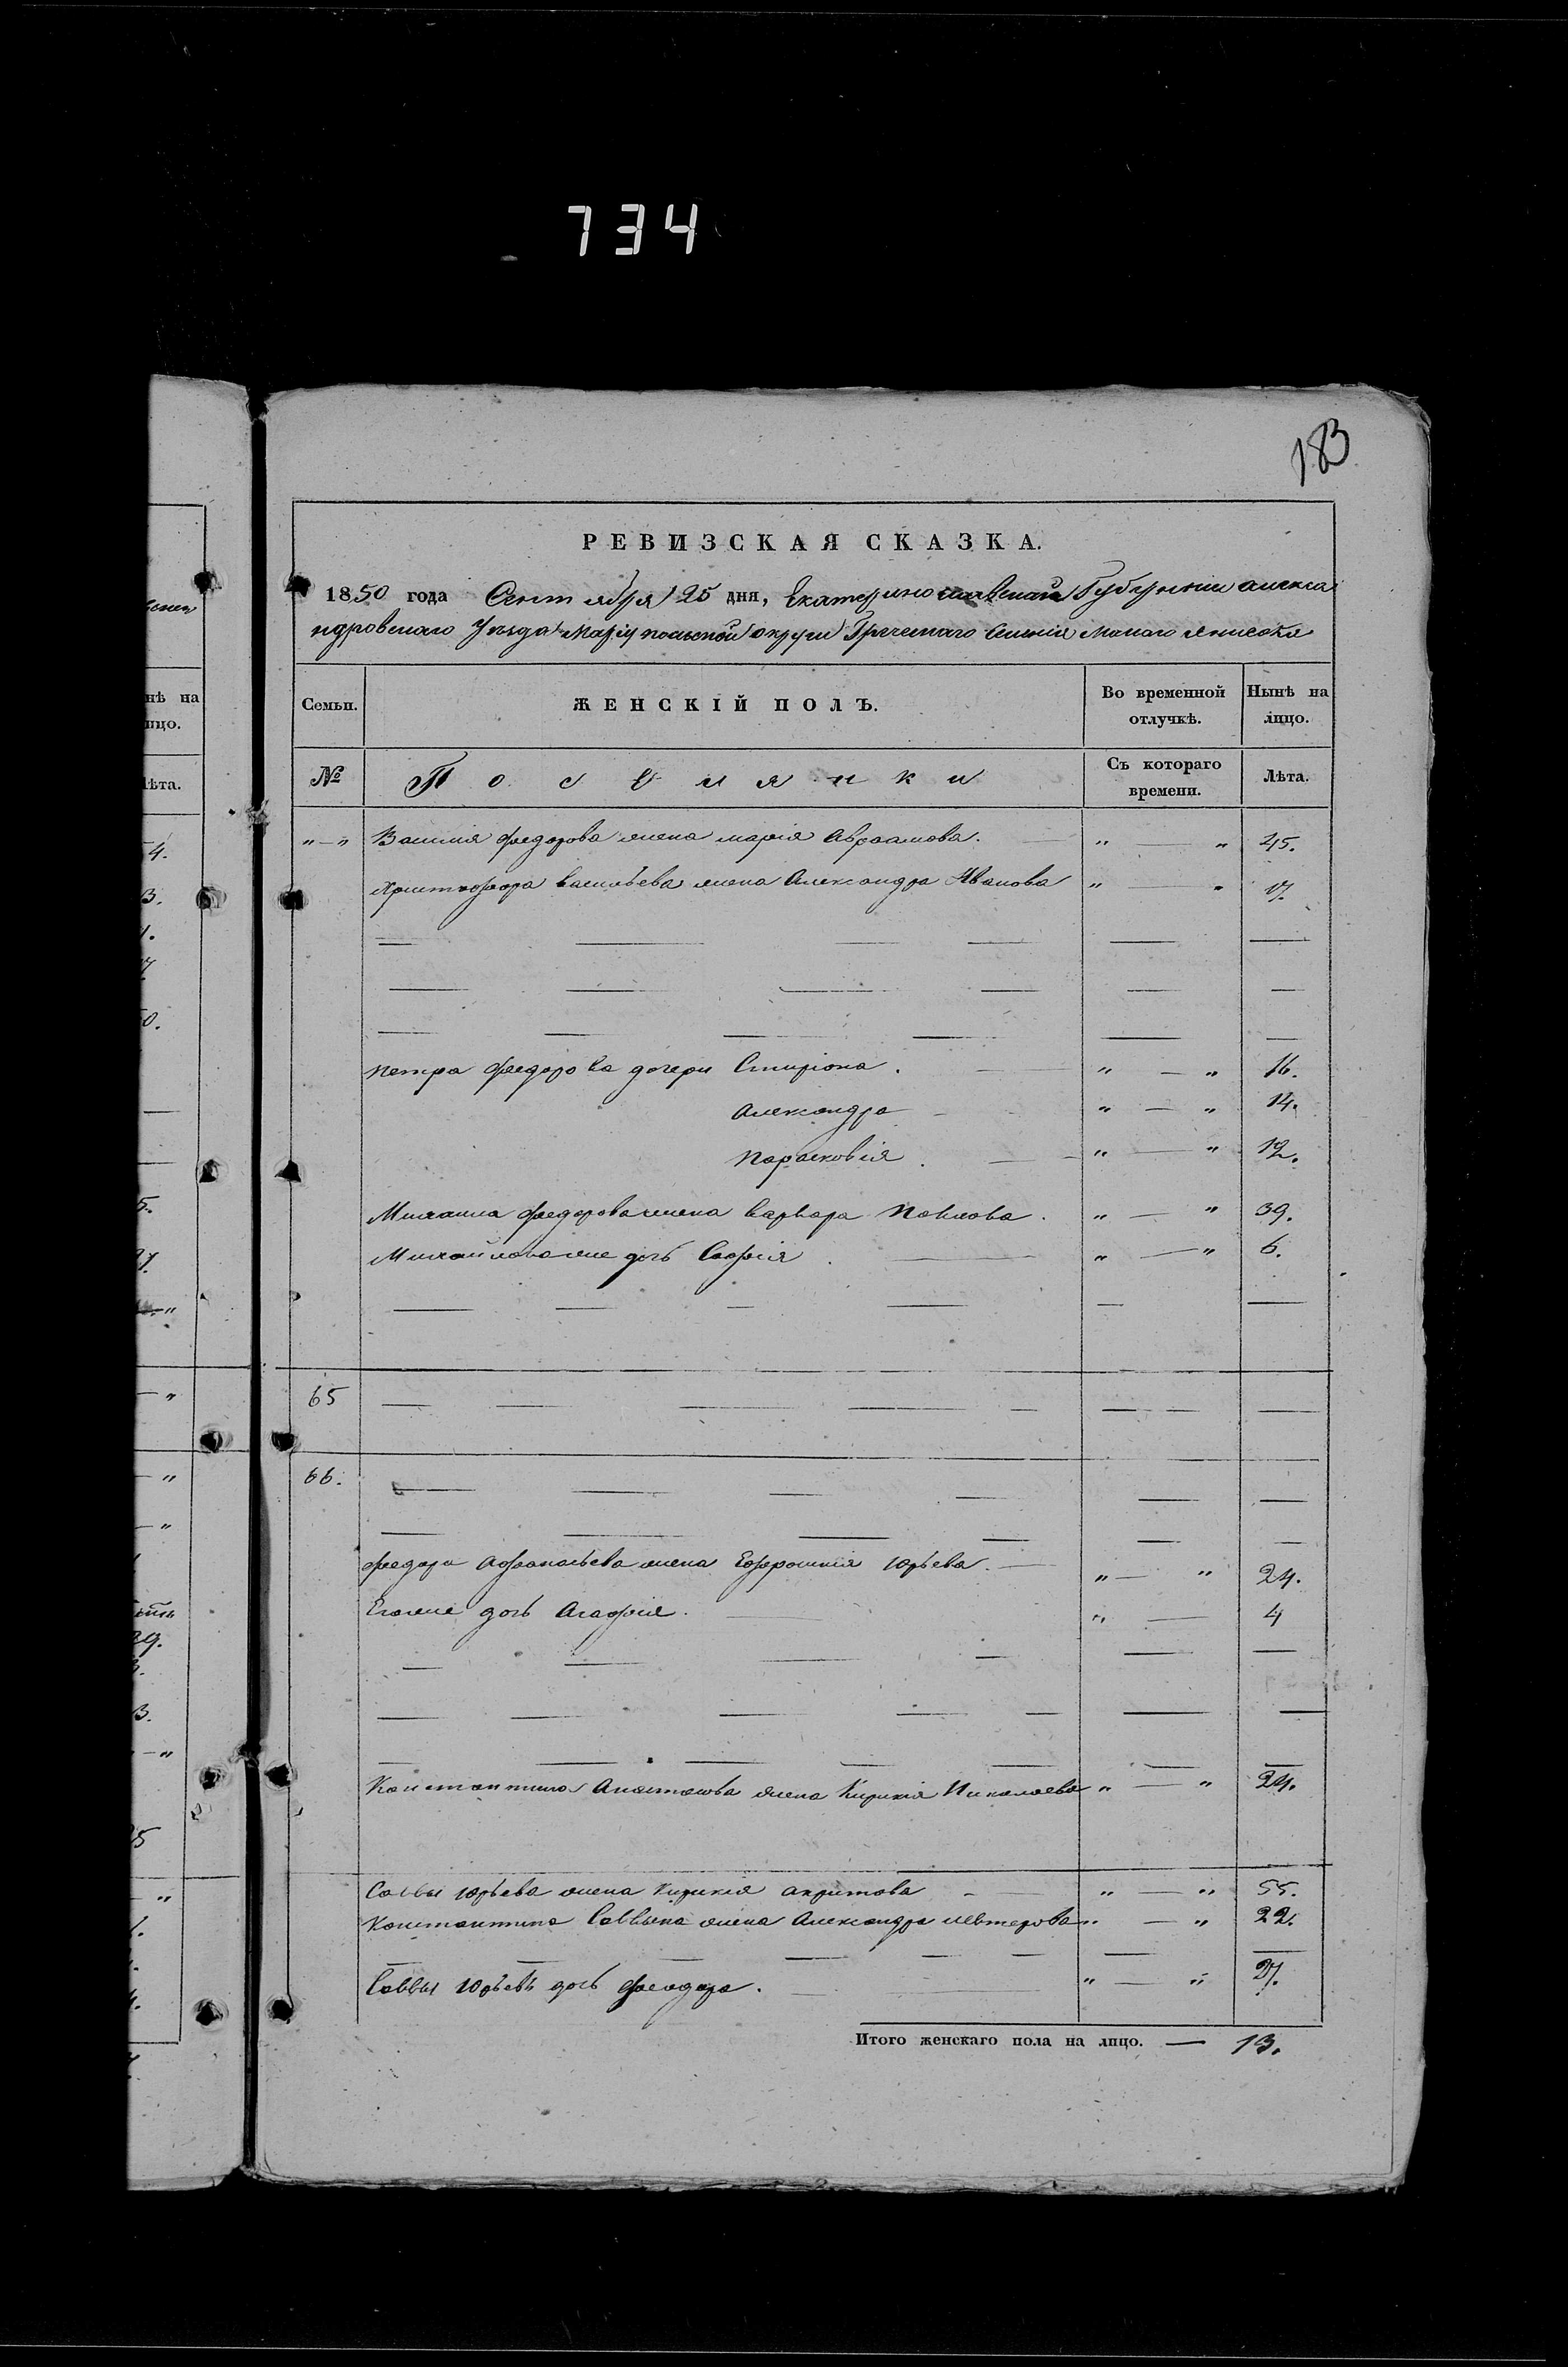 734
183
РЕВИЗСКАЯ СКАЗКА.
1850 года Сентября 25 дня, Екатеринославской Губернии алекса
ндровскаго Уѣзда Маріупольской округи Греческаго Селенія Малаго Янисоля
Семьи. ЖЕНСКІЙ ПОЛЪ. Во временной отлучкѣ. Нынѣ на лицо.
№ Поселянки Съ котораго времени. Лѣта.
„—„ Василія федорова жена марія Авраамова. „ — „ 45.
Христофора васильева жена Александра Иванова „ — „ 17.
петра федорова дочери . „ — „ 16.
Александра — „ — „ 14.
Парасковія . — „ — „ 12.
Михаила федорова жена варвара Павлова. „ — „ 39.
Михайлова же дочь Софія . — „ — „ 6.
65
66.
федора жена Ефросинія Юрьева. — „ — „ 24.
Его же дочь Агафія. „ — 4
Константина жена Кирикія Николаева „ — „ 24.
Саввы Юрьева жена Кирикія акритова — „ — „ 55.
Константина Саввина жена Александра левтерова „ — „ 22.
Саввы Юрьева дочь феодора. „ — „ 27.
Итого женскаго пола на лицо. — 13.
нѣ на
лицо.
лѣта.
4.
3.
1.
0.
5.